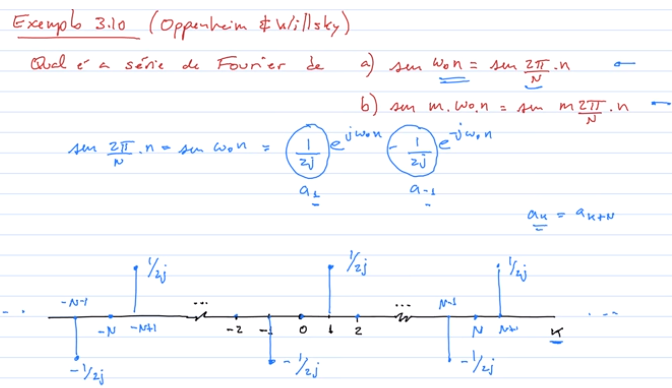 Exemplo 3.10 (Oppenheim & Willsky)
Qual é a série de Fourier de a) sen ω₀n = sen 2π/N . n
b) sen m.ω₀.n = sen m 2π/N . n
sen 2π/N . n = sen ω₀n = 1/2j e^jω₀n - 1/2j e^-jω₀n
a₁ a₋₁
aₖ = aₖ₊N
1/2j 1/2j 1/2j
-N-1 ... ... N-1
... -N -N+1 -2 -1 0 1 2 N N+1 K ...
-1/2j -1/2j -1/2j